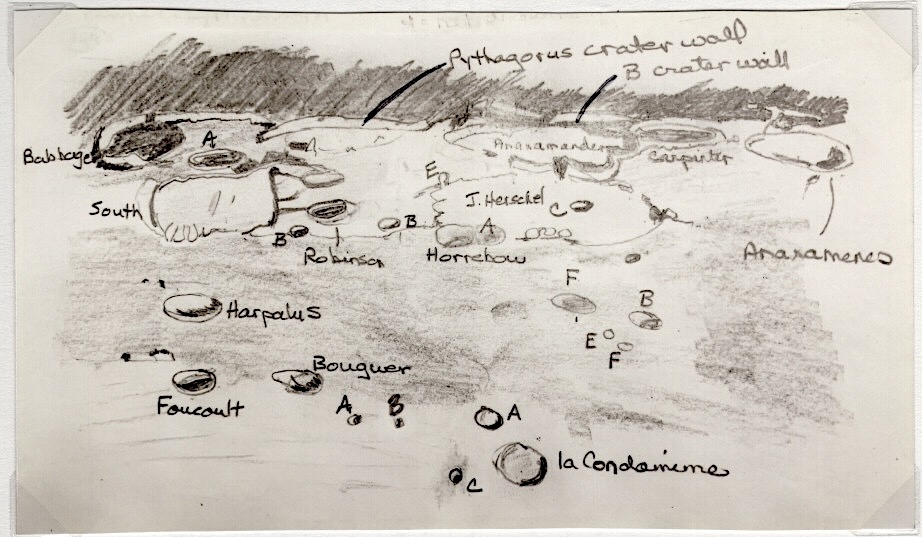 Pythagorus crater wall
B crater wall
Babbage
A
Anaxamander
Carpenter
E
South
J. Herschel
C
B
B
A
Robinson
Horrebow
Anaxamenes
F
Harpalus
B
E
F
Bouguer
Foucoult
A
B
A
la Condamime
C